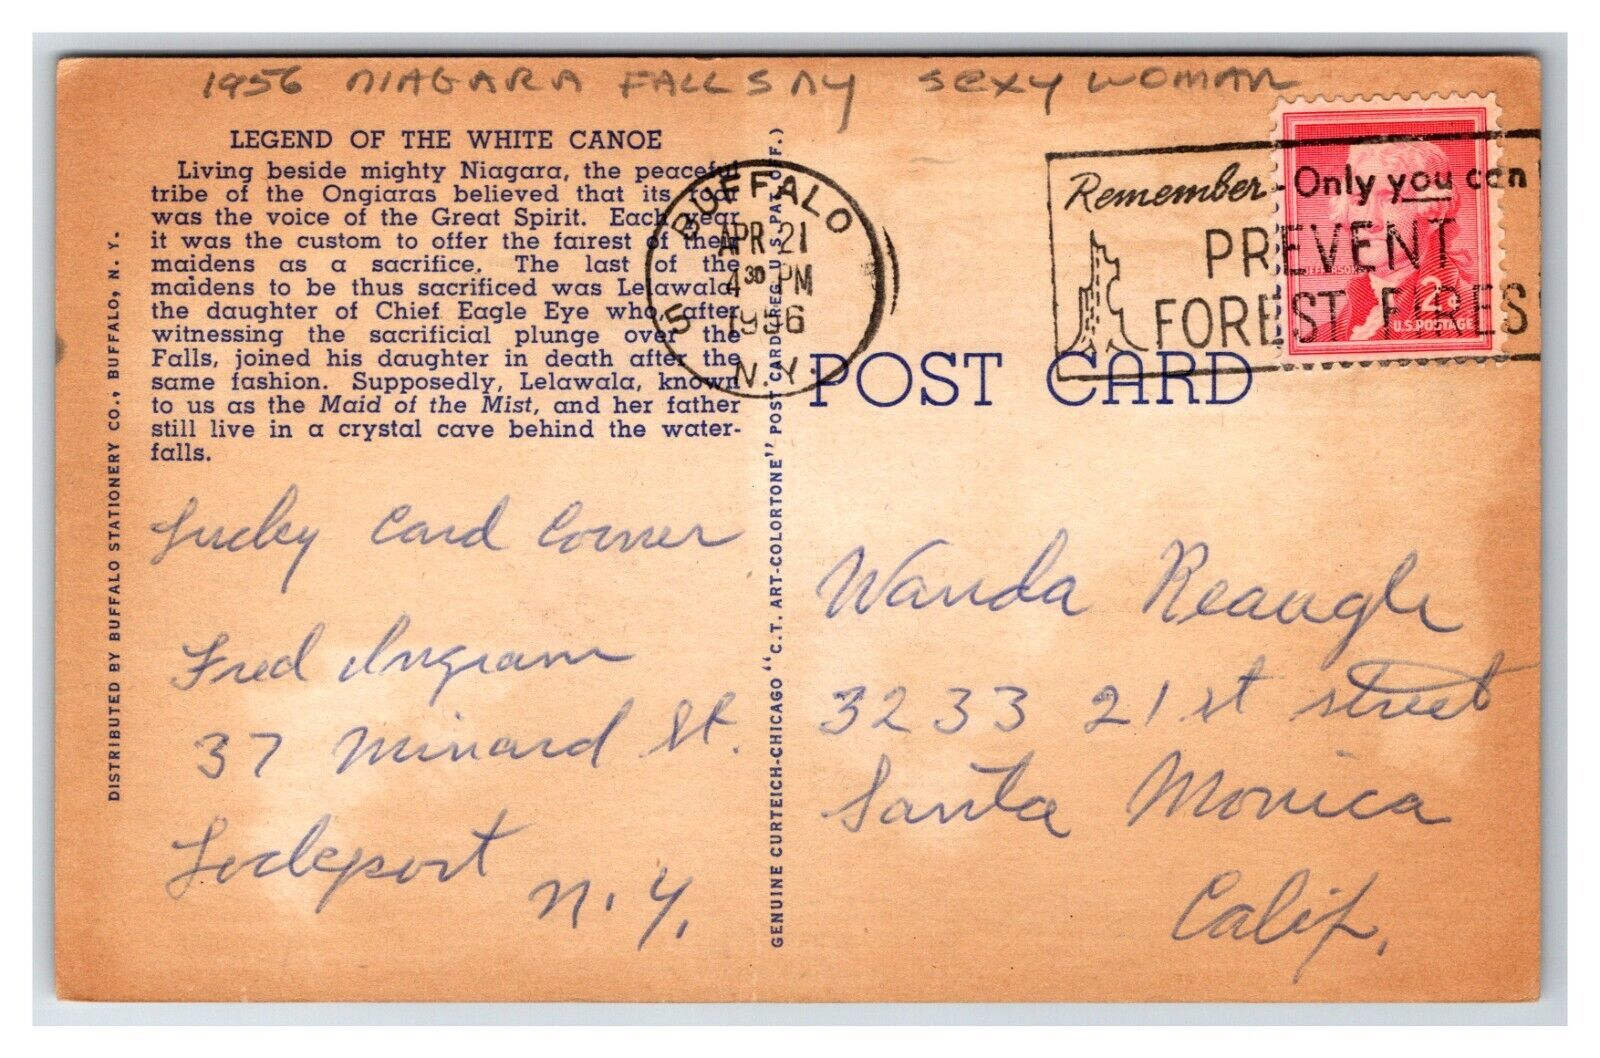 1956 NIAGARA FALLS NY SEXY WOMAN
LEGEND OF THE WHITE CANOE
Living beside mighty Niagara, the peaceful
tribe of the Ongiaras believed that its roar
was the voice of the Great Spirit. Each year
it was the custom to offer the fairest of their
maidens as a sacrifice. The last of the
maidens to be thus sacrificed was Lelawala,
the daughter of Chief Eagle Eye who, after
witnessing the sacrificial plunge over the
Falls, joined his daughter in death after the
same fashion. Supposedly, Lelawala, known
to us as the Maid of the Mist, and her father
still live in a crystal cave behind the water-
falls.
DISTRIBUTED BY BUFFALO STATIONERY CO., BUFFALO, N. Y.
Lucky Card Corner
Fred Ingram
37 Minard St.
Lockport
N.Y.
GENUINE CURTEICH-CHICAGO "C.T. ART-COLORTONE" POST CARD (REG. U.S. PAT. OFF.)
BUFFALO
APR 21
4 30 PM
1956
5 N.Y.
Remember - Only you can
PREVENT
FOREST FIRES
JEFFERSON
2¢
U.S. POSTAGE
POST CARD
Wanda Reaugh
3233 21st street
Santa Monica
Calif.